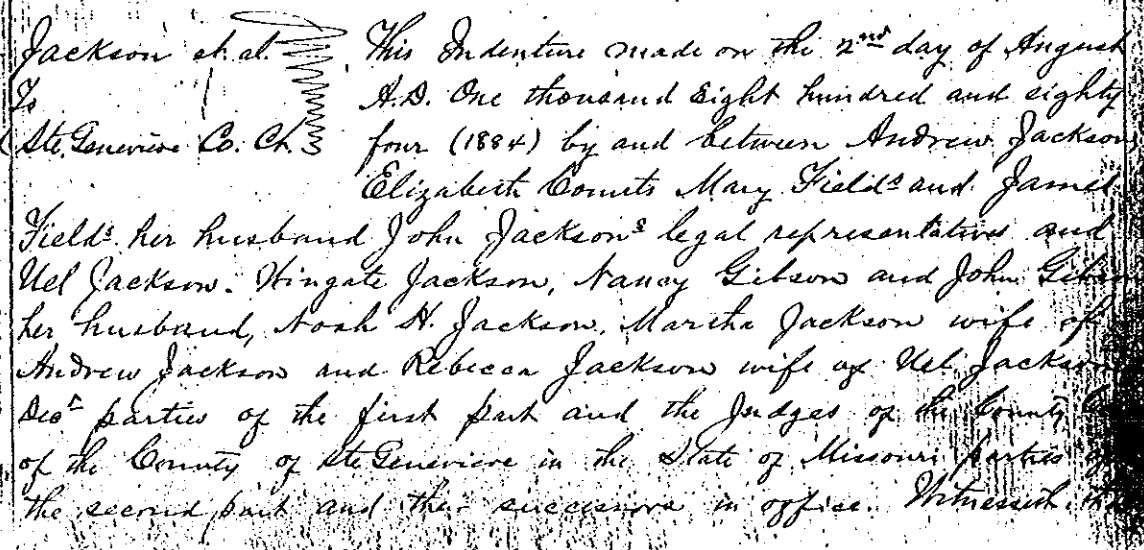 Jackson et. al. This Indenture made on the 2nd day of August
To A.D. One thousand Eight hundred and eighty
Ste. Genevieve Co. Ct. four (1884) by and between Andrew Jackson
Elizabeth Counts Mary Fields and James
Fields her husband John Jackson's legal representatives and
Uel Jackson. Wingate Jackson, Nancy Gibson and John Gibson
her husband, Noah H. Jackson, Martha Jackson wife of
Andrew Jackson and Rebecca Jackson wife of Uel Jackson
Decd parties of the first part and the Judges of the County
of the County of Ste Genevieve in the State of Missouri parties of
the second part and their successors in office. Witnesseth, that